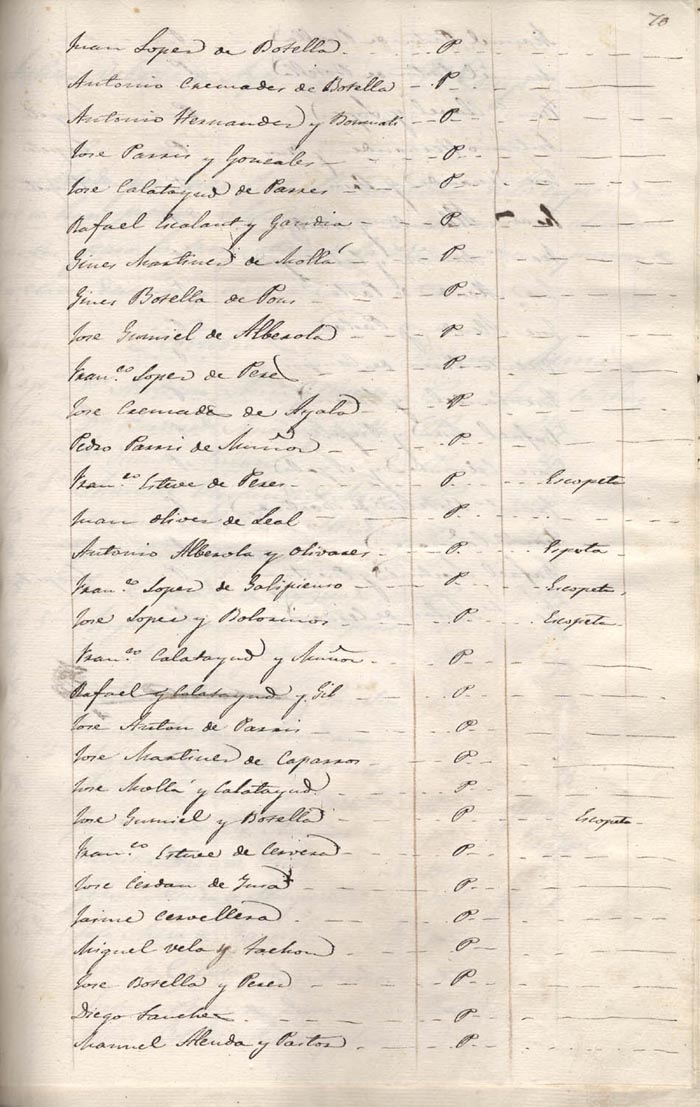 70
Juan Lopez de Botella P.
Antonio Cremades de Botella P.
Antonio Hernandez y Bonmati P.
Jose Parris y Goncales P.
Jose Calatayud de Parres P.
Rafael Escalant y Gandia P.
Gines Martinez de Mollá P.
Gines Botella de Pons P.
Jose Gumiel de Alberola P.
Fran.co Lopez de Perez P.
Jose Cremade de Ayala P.
Pedro Parris de Muñoz P.
Fran.co Esteve de Peres P. Escopeta
Juan Oliver de Leal P.
Antonio Alberola y Olivares P.
Fran.co Lopez de Galipienso P. Escopeta
Jose Lopez y Bolorinos P. Escopeta
Fran.co Calatayud y Muñoz P.
Rafael y Calatayud y Gil P.
Jose Anton de Parris P.
Jose Martinez de Caparros P.
Jose Mollá y Calatayud P.
Jose Gumiel y Botella P. Escopeta
Fran.co Esteve de Cervera P.
Jose Cerdan de P.
Jaime Cervellera P.
Miguel Vela y P.
Jose Botella y Perez P.
Diego Sanchez P.
Manuel Alenda y Pastor P.